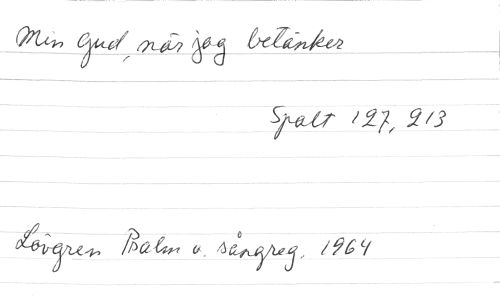 Min Gud, när jag betänker
Spalt 127, 213
Lövgren Psalm o. sångreg. 1964